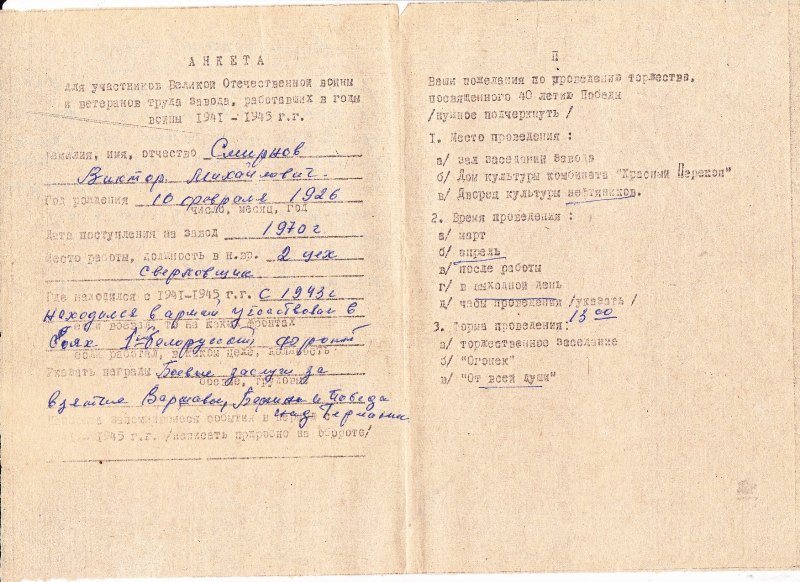 АНКЕТА
для участников Великой Отечественной войны
и ветеранов труда завода, работавших в годы
войны 1941 - 1945 г.г.
Фамилия, имя, отчество Смирнов
Виктор Михайлович.
Год рождения 10 февраля 1926
число, месяц, год
Дата поступления на завод 1970 г
Место работы, должность в н.вр. 2 цех
Сверловщик
Где находился с 1941-1945 г.г. с 1943 г
находился в армии участвовал в
если воевал, то на каких фронтах
боях 1й Белорусский фронт
если работал, в каком цехе, должность
Указать награды Боевые заслуги за
боевые, трудовые
взятие Варшавы, Берлин и Победа
над Германией
запоминающиеся события в
1945 г.г. /написать подробно на обороте/
П
Ваши пожелания по проведению торжества,
посвященного 40 летию Победы
/нужное подчеркнуть /
1. Место проведения :
а/ зал заседаний завода
б/ Дом культуры комбината "Красный Перекоп"
в/ Дворец культуры нефтяников.
2. Время проведения :
а/ март
б/ апрель
в/ после работы
г/ в выходной день
д/ часы проведения /указать /
13 00
3. Форма проведения:
а/ торжественное заседание
б/ "Огонек"
в/ "От всей души"